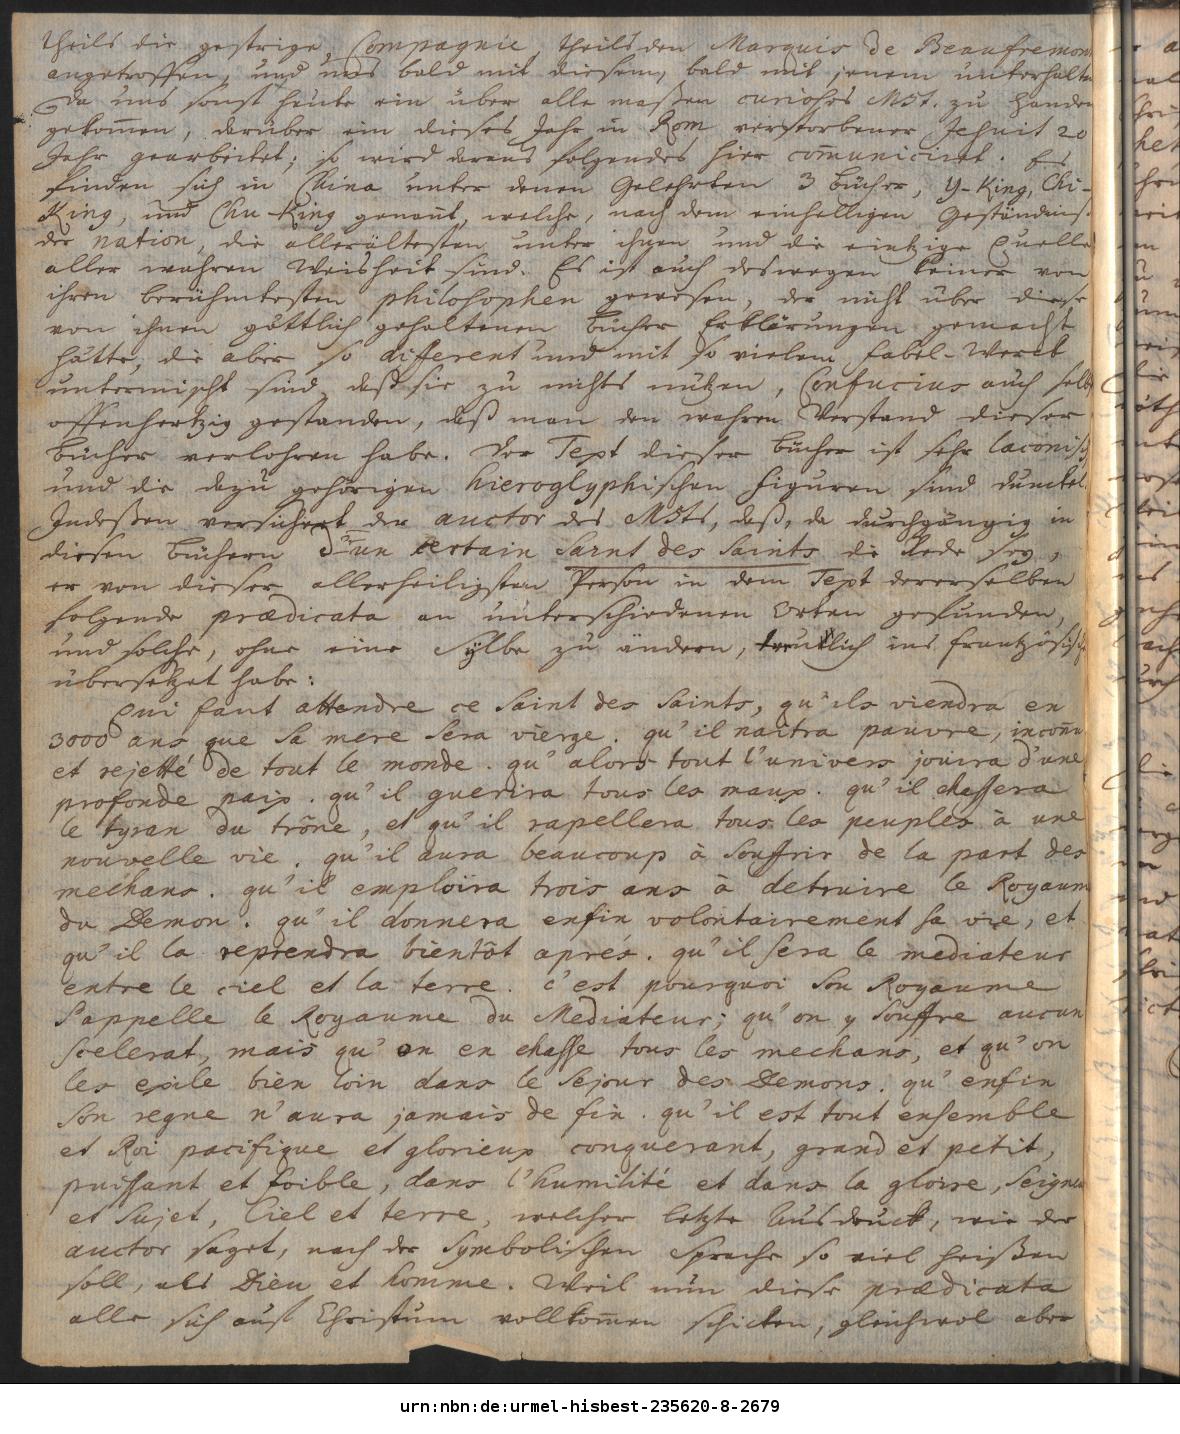 theils die gestrige Compagnie, theils den Marquis de Beaufremon
angetroffen, und uns bald mit diesem, bald mit jenem unterhalte
Da uns sonst heute ein über alle maßen curioses MSt. zu Handen
gekom̄en, darüber ein dieses Jahr in Rom verstorbener Jesuit 20
Jahr gearbeitet; so wird daraus folgendes hier com̄uniciret. Es
finden sich in China unter denen Gelehrten 3 Bücher, Y-King, Chi-
King, und Chu-King genan̄t, welche, nach dem einhelligen Geständnis
der nation, die allerältesten unter ihnen und die eintzige Quelle
aller wahren Weisheit sind. Es ist auch deswegen keiner von
ihren berühmtesten philosophen gewesen, der nicht über diese
von ihnen göttlich gehaltenen Bücher Erklärungen gemacht
hätte, die aber so different und mit so vielem Fabel-Werck
untermischt sind, daß sie zu nichts nützen, Confucius auch selbs
offenhertzig gestanden, daß man den wahren Verstand dieser
Bücher verlohren habe. Der Text dieser Bücher ist sehr laconisch
und die dazu gehörigen hieroglyphischen Figuren sind dunckel.
Indeßen versichert der auctor des MSts, daß, da durchgängig in
diesen Büchern d'un certain Saint des Saints die Rede sey,
er von dieser allerheiligsten Person in dem Text dererselben
folgende prædicata an unterschiedenen Orten gefunden,
und solche, ohne eine Sylbe zu ändern, treulich ins frantzösisch
übersetzet habe:
Qui faut attendre ce Saint des Saints, qu'ils viendra en
3000 ans que Sa mere Sera vierge. qu'il naitra pauvre, incon̄u
et rejetté de tout le monde. qu'alors tout l'univers jouira d'une
profonde paix. qu'il guerira tous les maux. qu'il chassera
le tyran du trône, et qu'il rapellera tous les peuples à une
nouvelle vie. qu'il aura beaucoup à Souffrir de la part des
mechans. qu'il emploïra trois ans à detruire le Royaum
du Demon. qu'il donnera enfin volontairement Sa vie, et
qu'il la reprendra bientôt aprés. qu'il Sera le mediateur
entre le ciel et la terre. c'est pourquoi Son Royaume
S'appelle le Royaume du Mediateur; qu'on y Souffre aucun
Scelerat, mais qu'on en chasse tous les mechans, et qu'on
les exile bien loin dans le Sejour des Demons. qu'enfin
Son regne n'aura jamais de fin. qu'il est tout ensemble
et Roi pacifique et glorieux conquerant, grand et petit,
puissant et foible, dans l'humilité et dans la gloire, Seigneu
et Sujet, Ciel et terre, welcher letzte Ausdruck, wie der
auctor saget, nach der Symbolischen Sprache so viel heißen
soll, als Dieu et homme. Weil nun diese prædicata
alle sich auf Christum vollkom̄en schicken, gleichwol aber
urn:nbn:de:urmel-hisbest-235620-8-2679